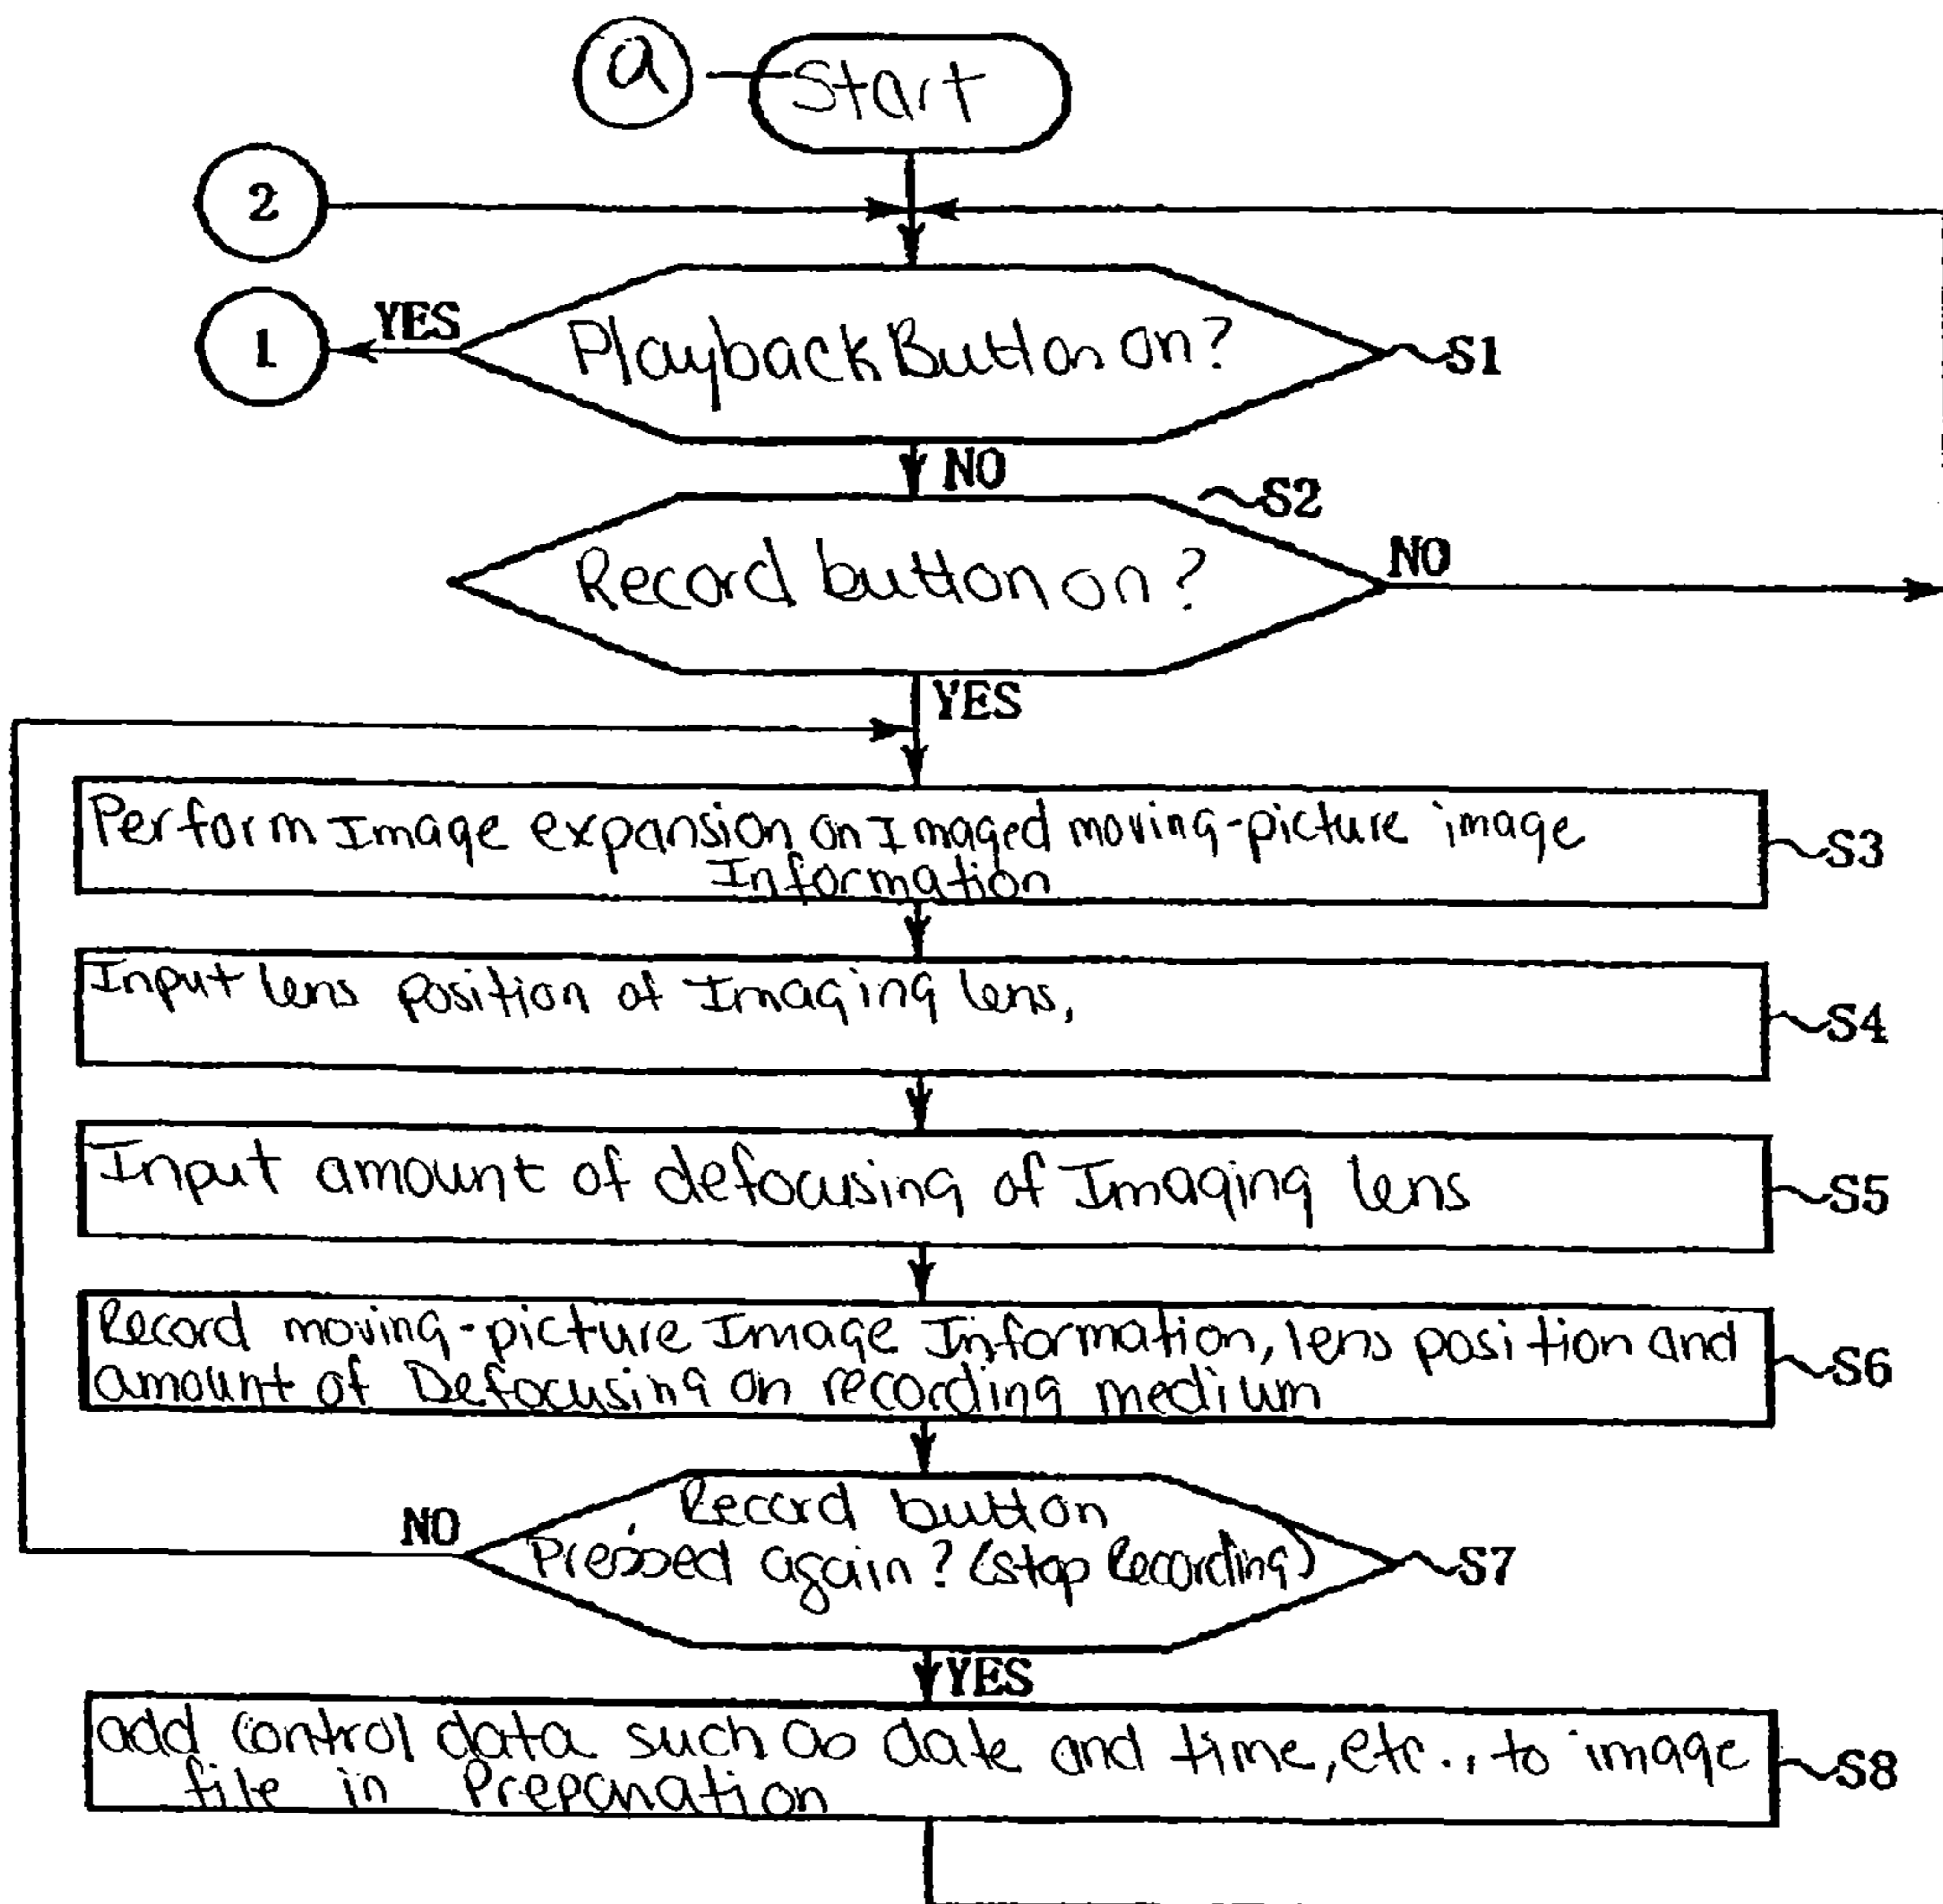 a
Start
2
1
YES
Playback Button on?
S1
NO
S2
Record button on?
NO
YES
Perform Image expansion on Imaged moving-picture image
Information
S3
Input lens position of Imaging lens,
S4
Input amount of defocusing of Imaging lens
S5
Record moving-picture Image Information, lens position and
amount of Defocusing on recording medium
S6
Record button
NO
Pressed again? (stop Recording)
S7
YES
add control data such as date and time, etc., to image
file in Preparation
S8